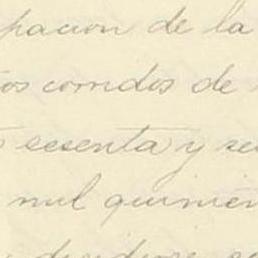 pacion de la
os corridos de
sesenta y se
mil quinien